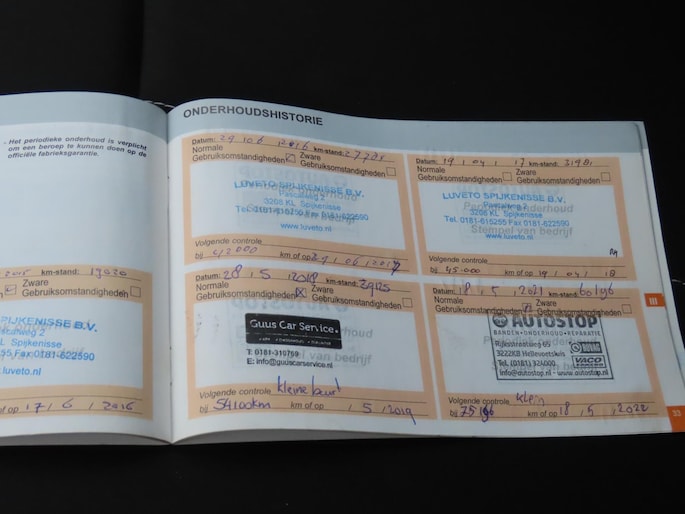 - Het periodieke onderhoud is verplicht
om een beroep te kunnen doen op de
officiële fabrieksgarantie.
2015 km-stand: 19020
Zware
Gebruiksomstandigheden
SPIJKENISSE B.V.
Pascalweg 2
KL Spijkenisse
Fax 0181-622590
www.luveto.nl
of op 17 / 6 / 2016
ONDERHOUDSHISTORIE
Datum: 29 / 06 / 2016 km-stand:
Normale Zware
Gebruiksomstandigheden Gebruiksomstandigheden
LUVETO SPIJKENISSE B.V.
Pascalweg 2
3208 KL Spijkenisse
Tel. 0181-615255 Fax 0181-622590
www.luveto.nl
Volgende controle
bij 42000 km of op 29 / 06 / 2017
Datum: 19 / 04 / 17 km-stand:
Normale Zware
Gebruiksomstandigheden Gebruiksomstandigheden
LUVETO SPIJKENISSE B.V.
Pascalweg 2
3208 KL Spijkenisse
Tel. 0181-615255 Fax 0181-622590
www.luveto.nl
Stempel van bedrijf
Volgende controle
bij 45.000 km of op 19 / 04 / 18
Datum: 28 / 5 / 2018 km-stand: 39125
Normale Zware
Gebruiksomstandigheden Gebruiksomstandigheden
Guus Car Service.
T: 0181-310759
E: info@guuscarservice.nl
Volgende controle kleine beurt
bij 54100km km of op / 5 / 2019
Datum: 18 / 5 / 2021 km-stand: 60196
Normale Zware
Gebruiksomstandigheden Gebruiksomstandigheden
AUTOSTOP
BANDEN • ONDERHOUD • REPARATIE
Rijksstraatweg 65
3222KB Hellevoetsluis
Tel. (0181) 324000
info@autostop.nl - www.autostop.nl
VACO
Volgende controle klein
bij 75196 km of op 18 / 5 / 2022
III
33